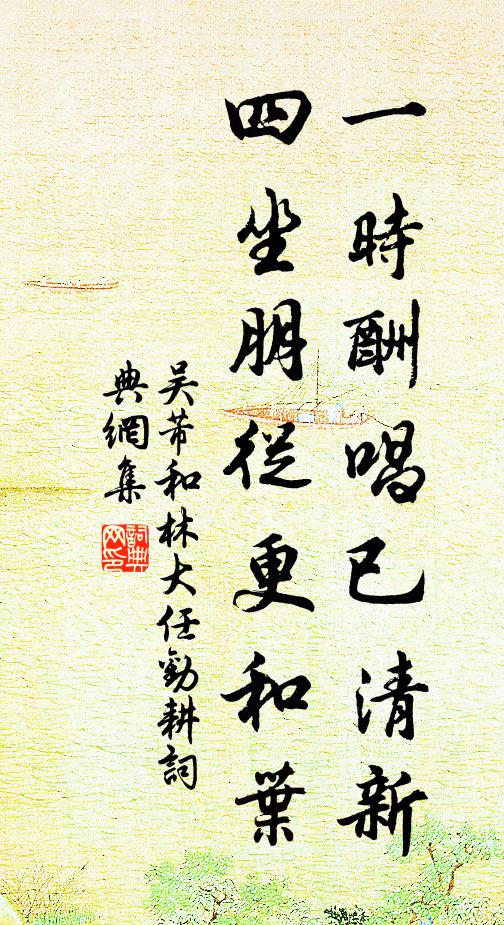 一時酬唱已清新
四坐朋從更和葉
吴芾和林大任勸耕詞
典網集
詞典
网印